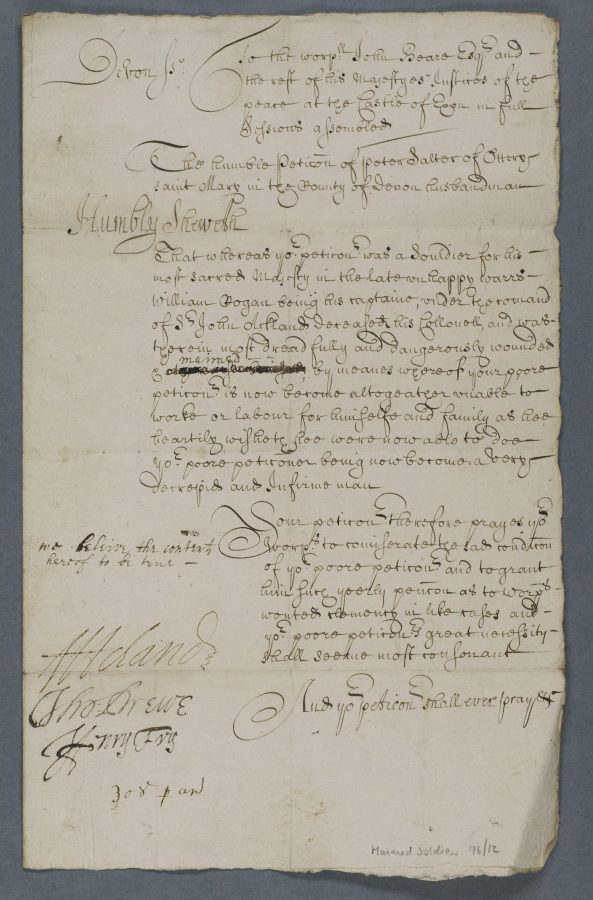 Devon ss.
To the worpll John Beare Esqr and
the rest of his Majestyes Justices of the
peace at the Castle of Exon in full
Sessions assembled
The humble Peticōn of Peter Salter of Ottery
saint Mary in the County of Devon husbandman
Humbly Sheweth
That whereas yor peticonr was a souldier for his
most sacred Majesty in the late unhappy warrs
William Rogan being his captaine, under the comand
of Sr John Ackland deceased his Collonell, and was
therein most dreadfully and dangerously wounded
maimed
& by meanes whereof your poore
peticonr is now become altogeather unable to
worke or labour for himselfe and family as hee
heartily wisheth hee were now able to doe
yor poore peticoner being now become a very
decrepid and Infirme man
Your peticonr therefore prayes yor
worps to comiserate the sad condicōn
of yor poore peticonr and to grant
him such yeerly pencōn as to worps
wonted clemency in like cases and
yor poore peticonrs great necessity
shall seeme most consonant
we beleive the contents
hereof to be true
And yor peticonr shall ever pray &c
Tho: Drewe
Henry Fry
30s p an
Maimed Soldiers 96/12